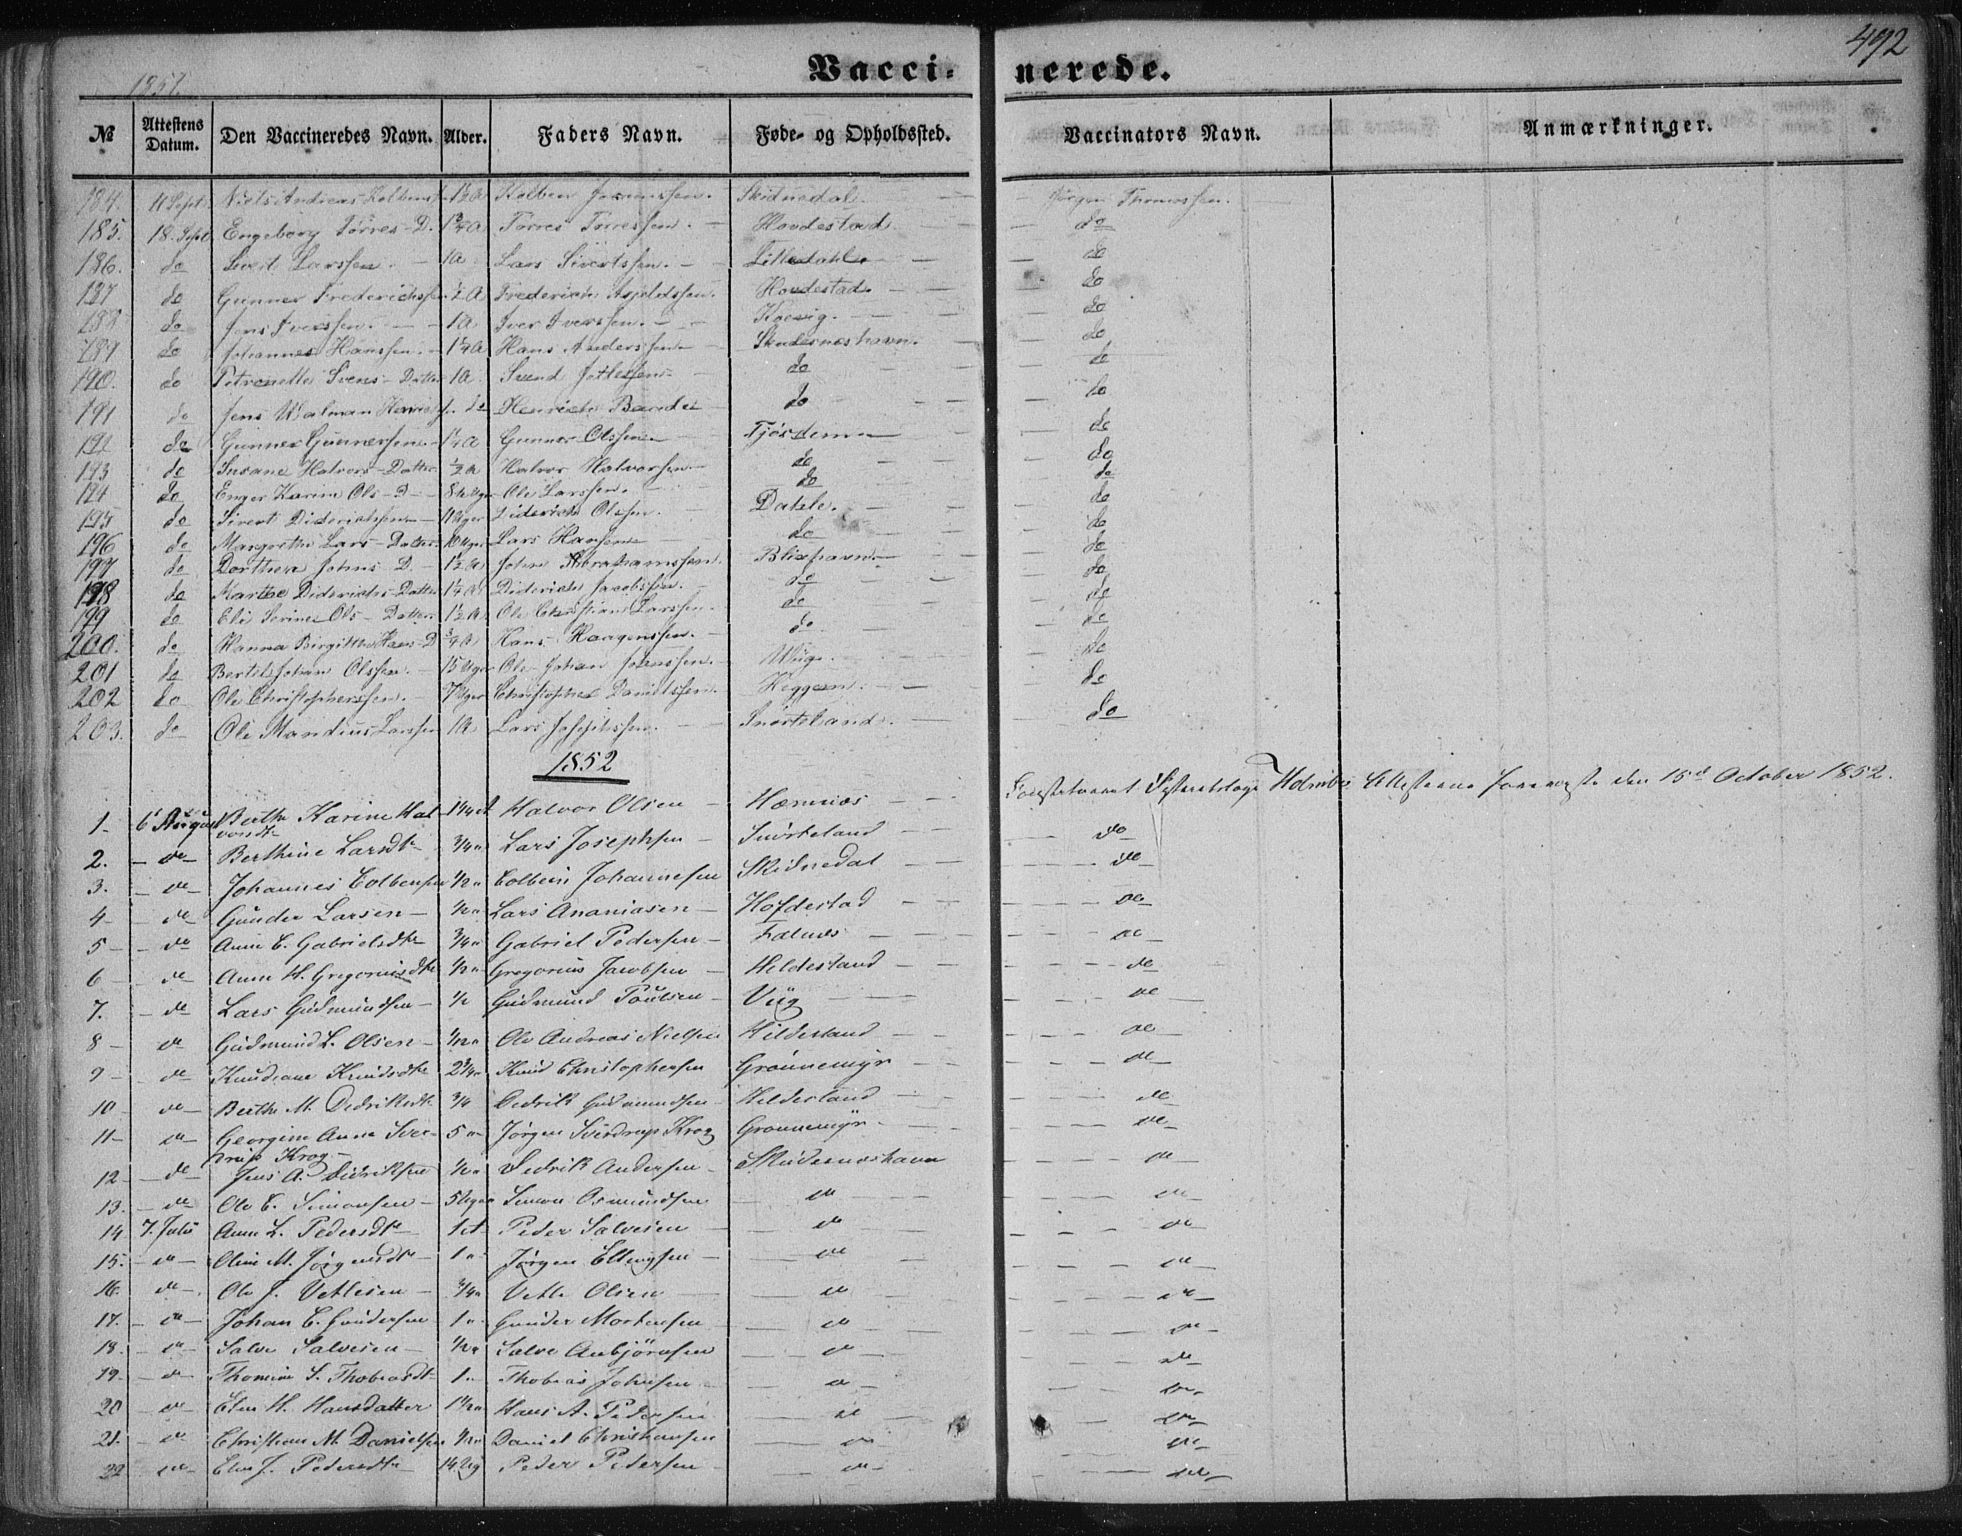 492
Vacci- nerede.
1851.
№ Attestens Datum. Den Vaccineredes Navn. Alder. Faders Navn. Føde- og Opholdssted. Vaccinators Navn. Anmærkninger.
184. 11 Sept. Niels Andreas Kolbens 1½ A Kolben Skidnedal. Jørgen Thomassen.
185. 18. Sept. Engeborg Torres-D. 1¾ A Torres Torressen. Hovdestad do
186. do Sivert Larssen. 1 A Lars Sivertssen. Lilledahl do
187 do Gunner Frederichssen ½ A Frederich Hovdestad. do
188 do Jens Iverssen. 1 A Iver Iverssen. do
189 do Johannes Hanssen. 1¼ A Hans Anderssen Skudesneshavn. do
190. do Petronelle Svens-Datter 1 A Svend do do
191 do Jens Walman do Henrich do do
192 do Gunner Gunnerssen ¼ A Gunner Olssen Tjøsdem do
193 do Susane Halvors-Datter ½ A Halvor Halvorssen do do
194 do Enger Karine Ols-D 8 Uger Ole Larssen. do do
195 do Sivert Diderichssen 11 Uger Diderich Olssen. Dahle. do
196 do Margerthe Lars-Datter 10 Uger Lars Hanssen do do
197 do Dorthea Johns D. 1½ A John Abrahamssen. Blixhavn. do
198 do Marthe Diderichs-Datter 1¼ A Diderich Jacobssen. do do
199 do Eli Serine Ols-Datter. 1½ A Ole Christian Larssen. do do
200. do Hanna Birgitthe Hans D ¾ A Hans do do
201 do Bertel Johan Olssen. 15 Uger Ole Johan Johnssen. Wiig. do
202 do Ole Christopherssen. 7 Uger Christopher Danielssen. Heggem. do
203. do Ole Mandius Larssen 1 A Lars Snørteland. do
1852
1. 6 August Berthe Karine Hal- 1¼ A Halvor Olsen Hemnæs Holmboe Attesterne den 15d October 1852.
vorsdtr
2. do Berthine Larsdtr ¾ " Lars Josephsen Snørteland do
3. do Johannes Colbensen ½ " Colbein Johannesen Skidnedal do
4 do Gunder Larsen ½ " Lars Ananiasen Hofdestad do
5 do Anne C. Gabrielsdtr ¾ " Gabriel Pedersen Falnes do
6 do Anne H. Gregoriusdtr ½ " Gregorius Jacobsen Hildesland do
7. do Lars Gudmundsen ½ Gudmund Poulsen Viig do
8 do Gudmund L. Olsen ½ " Ole Andreas Nielsen Hildesland do
9 do Knudiane Knudsdtr 2¾ " Knud Christophersen Grønnemyr do
10 do Berthe M. Dedriksdtr ¾ Dedrik Gudmundsen Hildesland do
11 do Georgine Anna Sver- 5 " Jørgen Sverdrup Krog Grønnemyr do
drup Krog
12 do Jens A. Didriksen ½ " Didrik Andersen Skudesneshavn do
13. do Ole C. Simonsen 5 Uger Simon Osmundsen do do
14 7. Juli Anne L. Pedersdtr 1 A Peder Salvesen do do
15. do Oline M. Jørgensdtr 1 " Jørgen Ellingsen do do
16. do Ole J. Vetlesen ¾ " Vetle Olsen do do
17. do Johan C. Gundersen 1 " Gunder Mortensen do do
18. do Salve Salvesen ½ " Salve Anbjørnsen do do
19. do Thomine S. Thobiasdtr 1 " Thobias Johnsen do do
20 do Elen H. Hansdatter 1½ " Hans A. Pedersen do do
21. do Christian M. Danielsen ½ " Daniel Christiansen do do
22 do Elen J. Pedersdtr 14 Ug Peder Pedersen do do